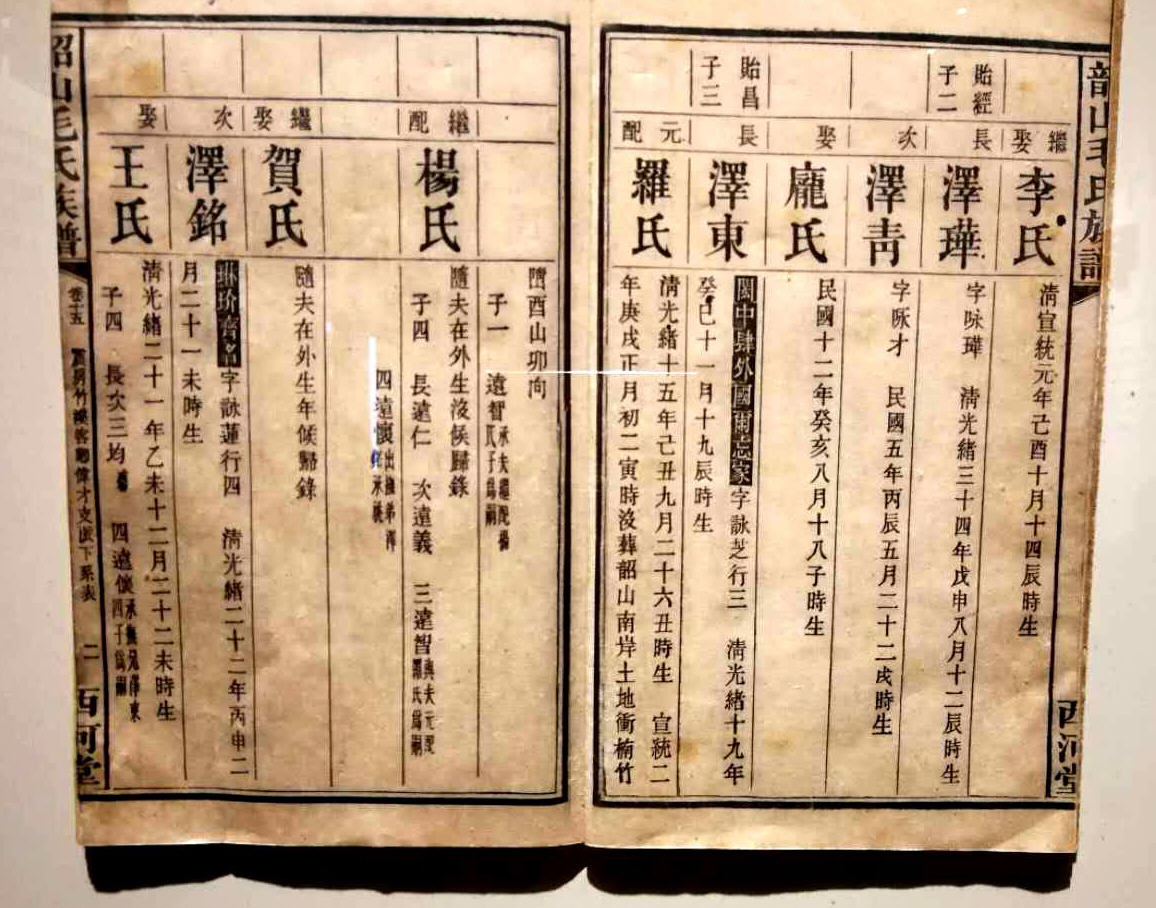 韶山毛氏族譜
西河堂
繼娶
李氏
清宣統元年己酉十月十四辰時生
貽經
子二
長
澤華
字咏瑋 清光緒三十四年戊申八月十二辰時生
次
澤青
字咏才 民國五年丙辰五月二十二戌時生
娶
龐氏
民國十二年癸亥八月十八子時生
貽昌
子三
長
澤東
閫中肆外國爾忘家 字詠芝行三 清光緒十九年
癸巳十一月十九辰時生
元配
羅氏
清光緒十五年己丑九月二十六丑時生 宣統二
年庚戌正月初二寅時沒葬韶山南岸土地衝楠竹
酉山卯向
子一 遠智
承夫繼配楊
氏子為嗣
繼配
楊氏
隨夫在外生沒候歸錄
子四 長遠仁 次遠義 三遠智
與夫元配
羅氏為嗣
四遠懷
出撫弟澤
承祧
繼娶
賀氏
隨夫在外生年候歸錄
次
澤銘
琳玠齊名 字詠蓮行四 清光緒二十二年丙申二
月二十一未時生
娶
王氏
清光緒二十一年乙未十二月二十二未時生
子四 長次三均 四遠懷
承撫兄澤東
四子為嗣
韶山毛氏族譜
卷十五
二
西河堂